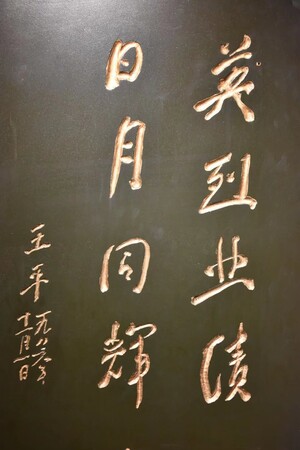 英烈业绩
日月同辉
王平
一九八六年
十一月一日